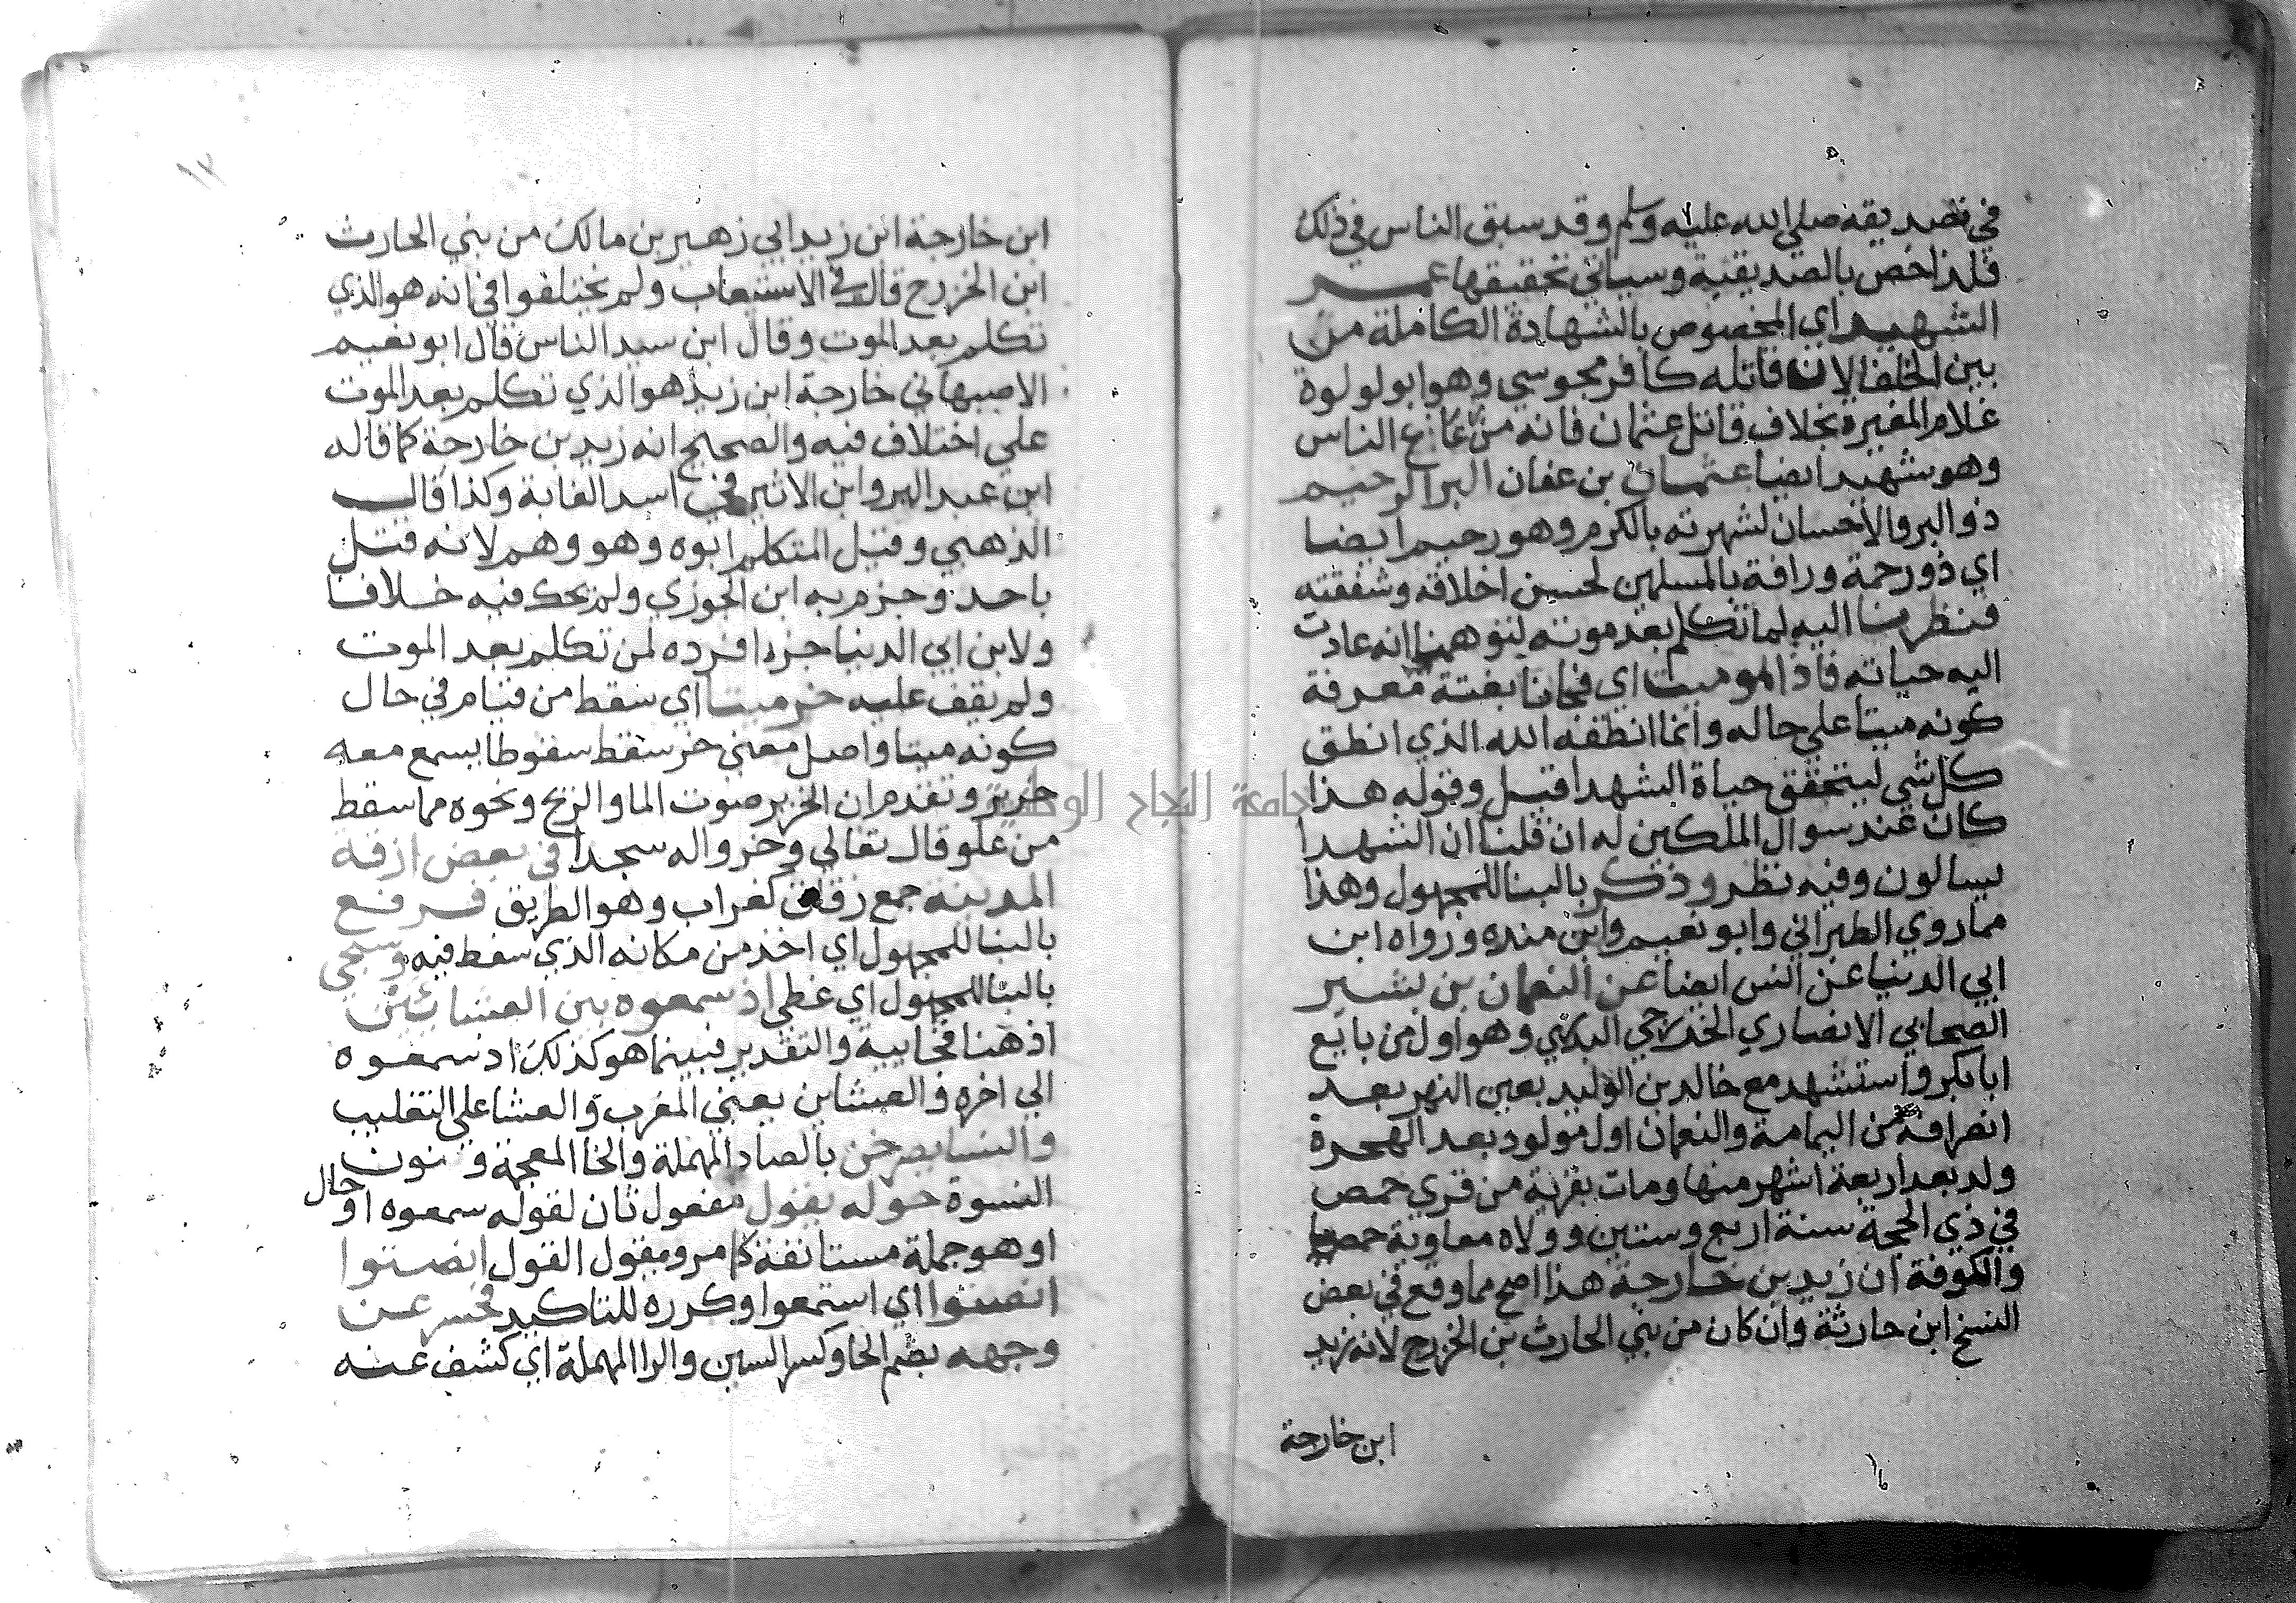 في تصديقه صلي الله عليه وسلم وقد سبق الناس في ذلك
فلذا خص بالصديقية وسياتي تحقيقها عمر
الشهيد اي المخصوص بالشهادة الكاملة من
بين الخلفا لان قاتله كافر مجوسي وهو ابو لولوة
غلام المغيرة بخلاف قاتل عثمان فانه من الناس
وهو شهيد ايضا عثمان بن عفان البر الرحيم
ذو البر والاحسان لشهرته بالكرم وهو رحيم ايضا
اي ذو رحمة ورافة بالمسلمين لحسن اخلاقه وشفقته
فنظرنا اليه لما تكلم بعد موته لتوهمنا انه عادت
اليه حياته فاذا هو ميت اي فجانا بغتة معرفة
كونه ميتا علي حاله وانما انطقه الله الذي انطق
كل شي ليتحقق حياة الشهدا قيل وقوله هذا
كان عند سوال الملكين له ان قلنا ان الشهدا
يسالون وفيه نظر وذكر بالبنا للمجهول وهذا
مما روي الطبراني وابو نعيم وابن منده ورواه ابن
ابي الدنيا عن انس ايضا عن النعمان بن بشير
الصحابي الانصاري الخزرجي البدري وهو اول من بايع
ابا بكر واستشهد مع خالد بن الوليد بعين التمر بعد
انصرافه من اليمامة والنعمان اول مولود بعد الهجرة
ولد بعد اربعة اشهر منها ومات بقرية من قري حمص
في ذي الحجة سنة اربع وستين وولاه معاوية حمص
والكوفة ان زيد بن خارجة هذا اصح مما وقع في بعض
النسخ ابن حارثة وان كان من بني الحارث بن الخزرج لانه زيد
ابن خارجة
١٣
ابن خارجة ابن زيد ابي زهير بن مالك من بني الحارث
ابن الخزرج قال في الاستيعاب ولم يختلفوا في انه هو الذي
تكلم بعد الموت وقال ابن سيد الناس قال ابو نعيم
الاصبهاني خارجة ابن زيد هو الذي تكلم بعد الموت
علي اختلاف فيه والصحيح انه زيد بن خارجة كما قاله
ابن عبد البر وابن الاثير في اسد الغابة وكذا قال
الذهبي وقيل المتكلم ابوه وهو وهم لانه قتل
باحد وجزم به ابن الجوزي ولم يحك فيه خلافا
ولابن ابي الدنيا جزء افرده لمن تكلم بعد الموت
ولم يقف عليه خر ميتا اي سقط من قيام في حال
كونه ميتا واصل معني خر سقط سقوطا يسمع معه
خرير وتقدم ان الخرير صوت الما والريح ونحوه مما سقط
من علو قال تعالي وخروا له سجدا في بعض ازقة
المدينه جمع زقاق كغراب وهو الطريق فرفع
بالبنا للمجهول اي اخذ من مكانه الذي سقط فيه وسجي
بالبنا للمجهول اي غطي اذ سمعوه بين العشائين
اذ هنا فجاييه والتقدير فبينما هو كذلك اذ سمعوه
الي اخره والعشاين يعني المغرب والعشا علي التغليب
والنسا يصرخن بالصاد المهملة والخا المعجمة ونون
النسوة حوله يقول مفعول ثان لقوله سمعوه او حال
او هو جملة مستانفة كما مر ومقول القول انصتوا
انصتوا اي استمعوا وكرره للتاكيد فحسر عن
وجهه بضم الحا وكسر السين والرا المهملة اي كشف عنه
جامعة النجاح الوطنية